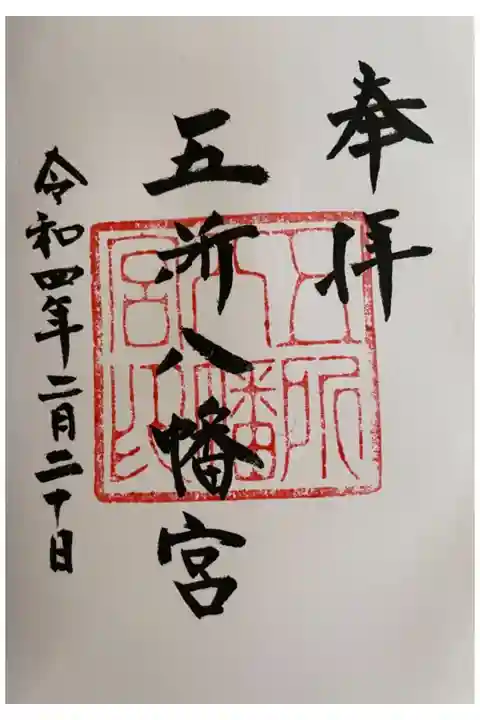 奉拝
五所八幡宮
五所八幡宮印
令和四年二月二十日